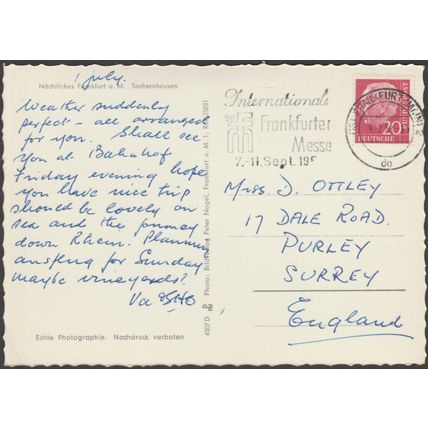 Nächtliches Frankfurt a. M. Sachsenhausen
1 July.
Weather suddenly
perfect - all arranged
for you. Shall see
you at Bahnhof
Friday evening hope
you have nice trip
should be lovely on
sea and the journey
down Rhein. Planning
ausflug for Sunday
maybe vineyards?
Va
Echte Photographie. Nachdruck verboten
4507 D Photo: Bild Peter Nagel, Frankfurt a. M. 1,
Internationale
Frankfurter
Messe
7.-11. Sept. 195
FRANKFURT (MAIN) 2
da
20
DEUTSCHE
Miss D. OTTLEY
17 DALE ROAD.
PURLEY
SURREY
England